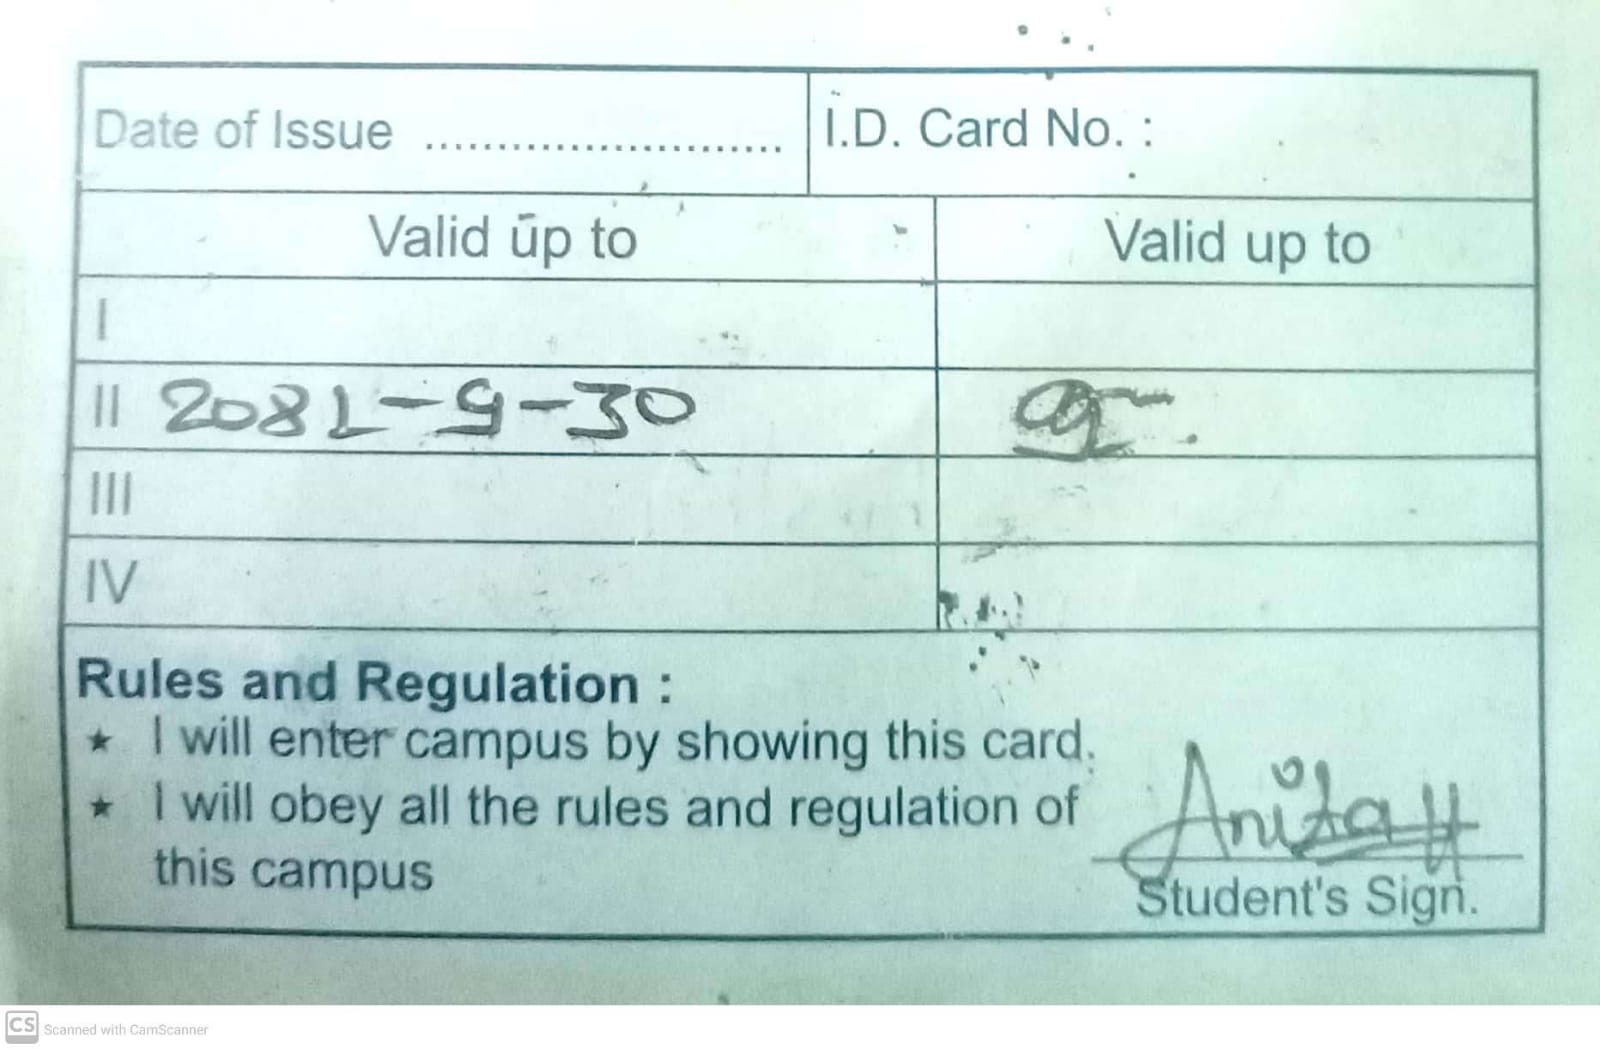 Date of Issue ........................ I.D. Card No. :
Valid up to Valid up to
I
II 2081-9-30
III
IV
Rules and Regulation :
★ I will enter campus by showing this card.
★ I will obey all the rules and regulation of
this campus
Anita
Student's Sign.
CS Scanned with CamScanner